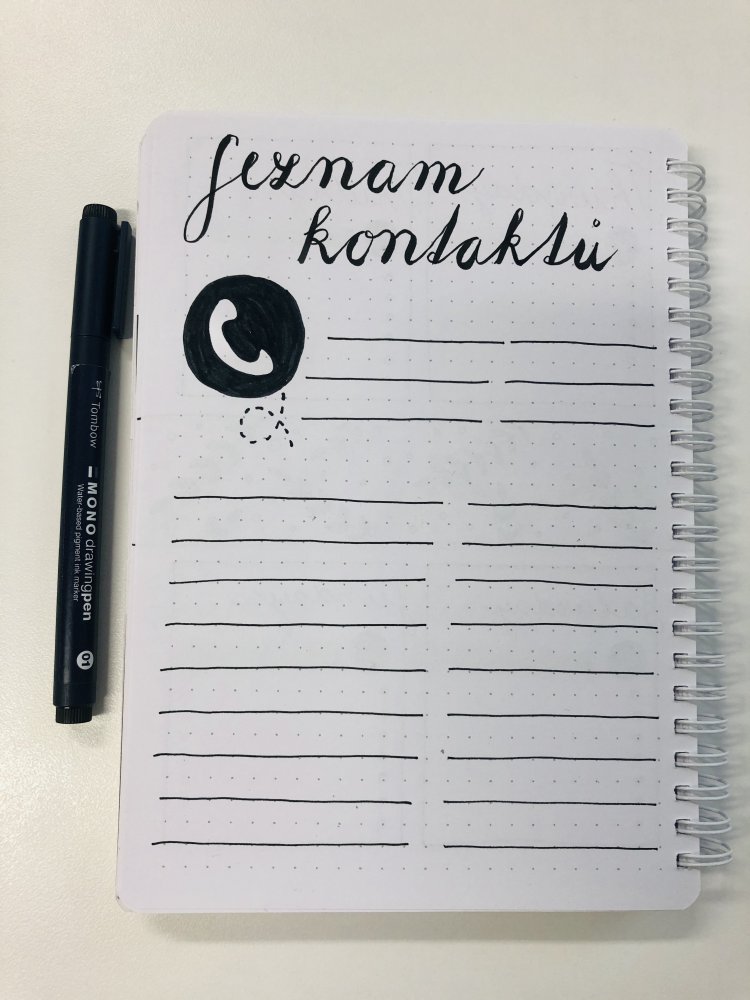 Seznam
kontaktů
Tombow
MONO drawingpen
Water-based pigment ink marker
01